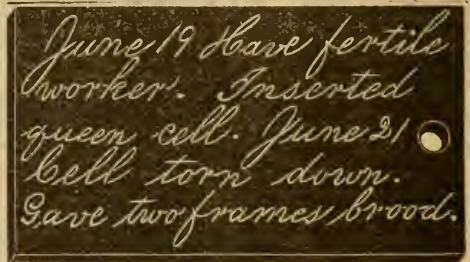 June 19 Have fertile
worker. Inserted
queen cell. June 21
Cell torn down.
Gave two frames brood.